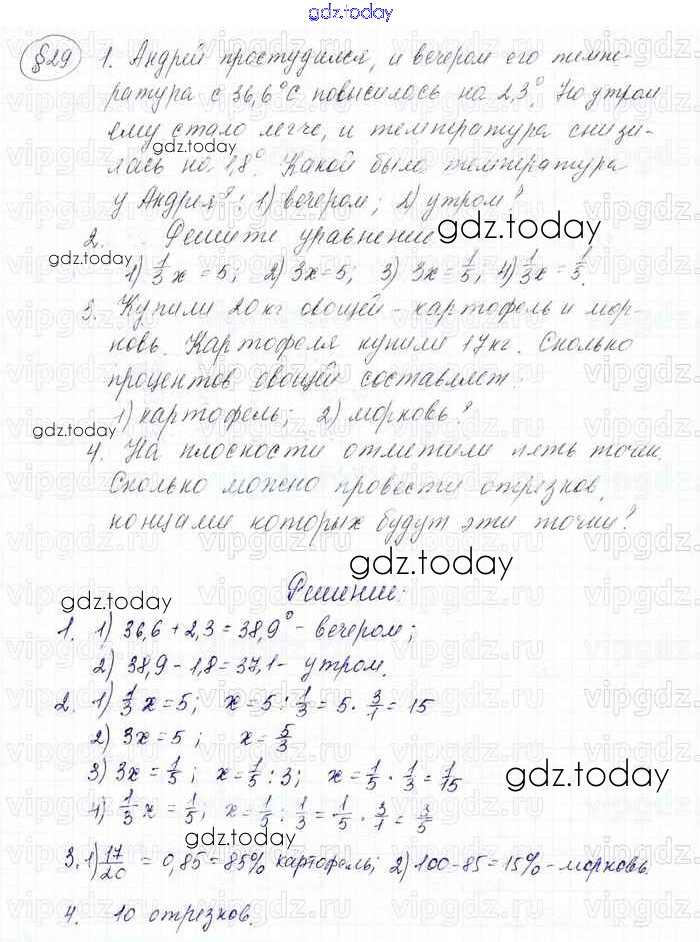 gdz.today
§29 1. Андрей простудился, и вечером его темпе-
ратура с 36,6°С повысилась на 2,3°. Но утром
ему стало легче, и температура снизи-
лась на 1,8°. Какой была температура
у Андрея: 1) вечером; 2) утром?
2. Решите уравнение
1) 1/3 x = 5; 2) 3x = 5; 3) 3x = 1/5; 4) 1/3 x = 1/5.
3. Купили 20 кг овощей - картофель и мор-
ковь. Картофеля купили 17 кг. Сколько
процентов овощей составляет:
1) картофель; 2) морковь?
4. На плоскости отметили пять точек.
Сколько можно провести отрезков,
концами которых будут эти точки?
Решение:
1. 1) 36,6 + 2,3 = 38,9° - вечером;
2) 38,9 - 1,8 = 37,1 - утром.
2. 1) 1/3 x = 5; x = 5 : 1/3 = 5 · 3/1 = 15
2) 3x = 5; x = 5/3
3) 3x = 1/5; x = 1/5 : 3; x = 1/5 · 1/3 = 1/15
4) 1/3 x = 1/5; x = 1/5 : 1/3 = 1/5 · 3/1 = 3/5
3. 1) 17/20 = 0,85 = 85% картофель; 2) 100 - 85 = 15% - морковь.
4. 10 отрезков.